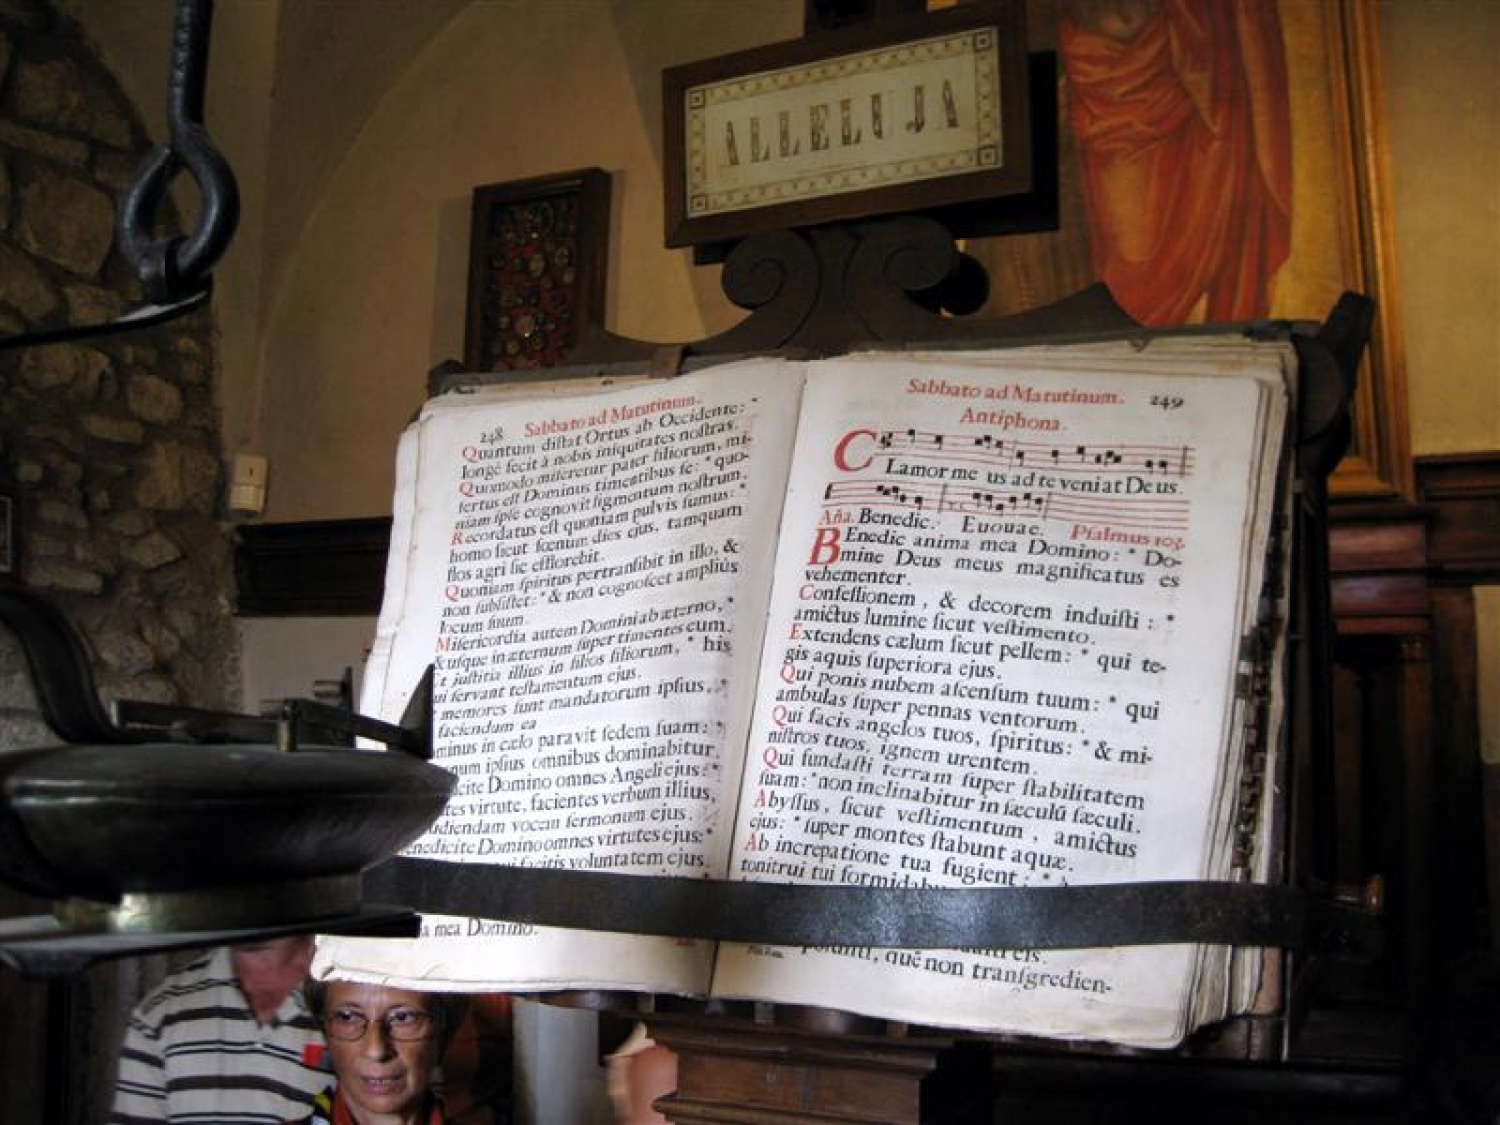 ALLELUJA
248 Sabbato ad Matutinum.
Quantum diſtat Ortus ab Occidente: *
longè fecit à nobis iniquitates noſtras.
Quomodo miſeretur pater filiorum, mi-
ſertus eſt Dominus timentibus ſe: * quo-
niam ipſe cognovit figmentum noſtrum.
Recordatus eſt quoniam pulvis ſumus: *
homo ſicut fœnum dies ejus, tamquam
flos agri ſic efflorebit.
Quoniam ſpiritus pertranſibit in illo, &
non ſubſiſtet: * & non cognoſcet ampliùs
locum ſuum.
Miſericordia autem Domini ab æterno, *
& uſque in æternum ſuper timentes eum.
Et juſtitia illius in filios filiorum, * his
ui ſervant teſtamentum ejus.
memores ſunt mandatorum ipſius, *
faciendum ea
minus in cælo paravit ſedem ſuam: *
num ipſius omnibus dominabitur.
cite Domino omnes Angeli ejus: *
tes virtute, facientes verbum illius,
udiendam vocem ſermonum ejus.
enedicite Domino omnes virtutes ejus: *
facitis voluntatem ejus.
a mea Domino.
Sabbato ad Matutinum. 249
Antiphona.
CLamor me us ad te veniat De us.
Aña. Benedic. Euouae. Pſalmus 103.
BEnedic anima mea Domino: * Do-
mine Deus meus magnificatus es
vehementer.
Confeſſionem, & decorem induiſti: *
amictus lumine ſicut veſtimento.
Extendens cælum ſicut pellem: * qui te-
gis aquis ſuperiora ejus.
Qui ponis nubem aſcenſum tuum: * qui
ambulas ſuper pennas ventorum.
Qui facis angelos tuos, ſpiritus: * & mi-
niſtros tuos, ignem urentem.
Qui fundaſti terram ſuper ſtabilitatem
ſuam: * non inclinabitur in ſæculũ ſæculi.
Abyſſus, ſicut veſtimentum, amictus
ejus: * ſuper montes ſtabunt aquæ.
Ab increpatione tua fugient: *
tonitrui tui formidab
eis.
quẽ non tranſgredien-